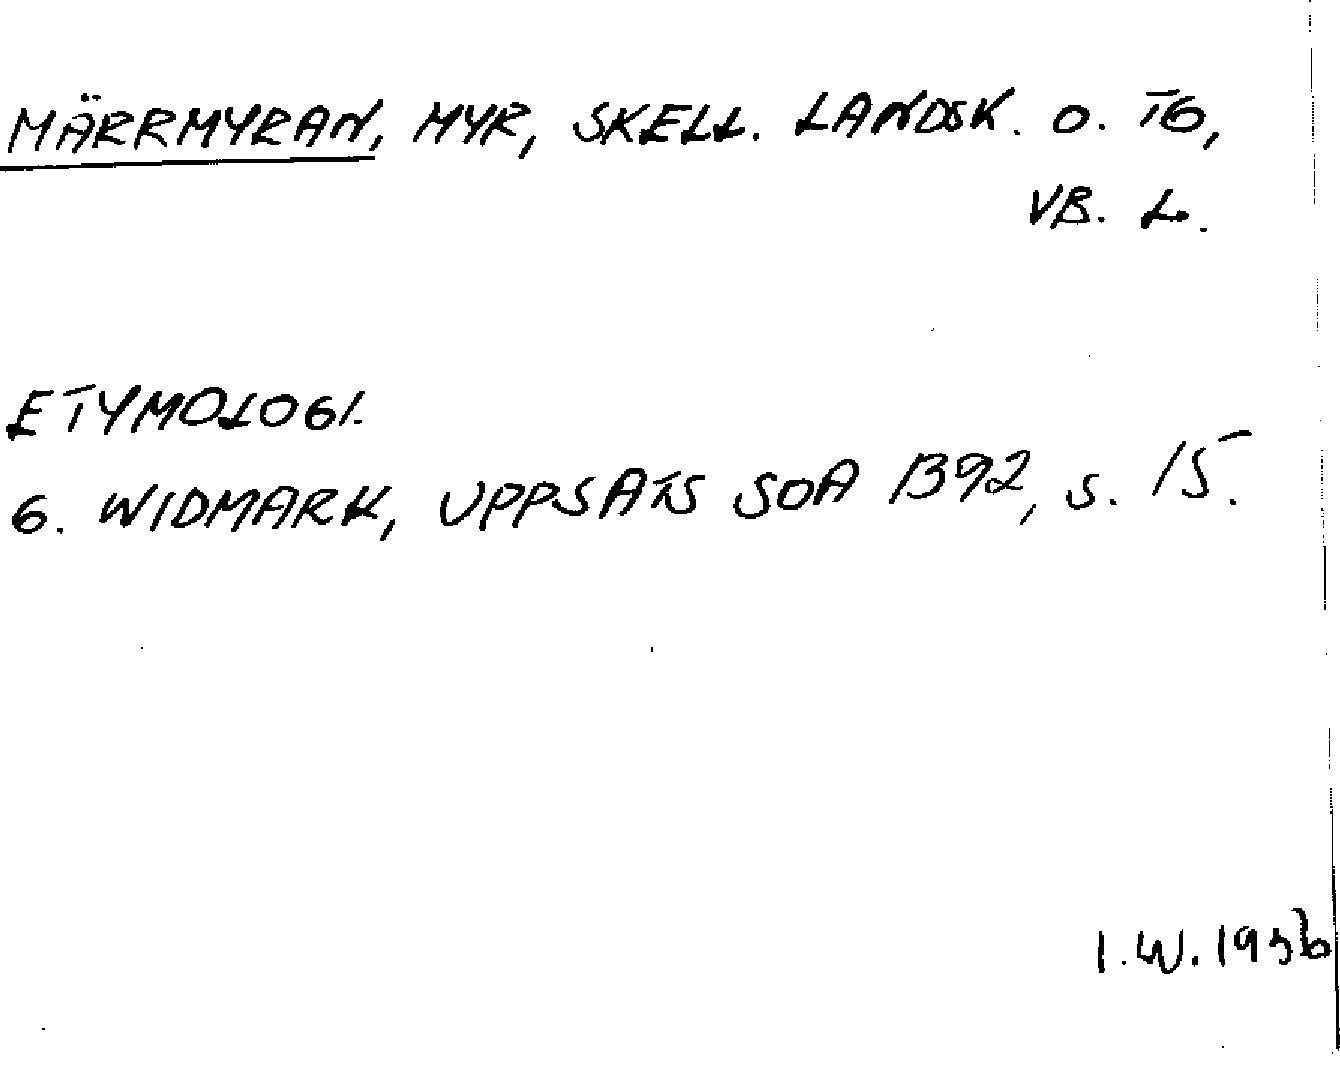 MÄRRMYRAN, MYR, SKELL. LANDSK. O. TG,
VB. L.
ETYMOLOGI.
G. WIDMARK, UPPSATS SOA B92, s. 15.
I.W. 1956